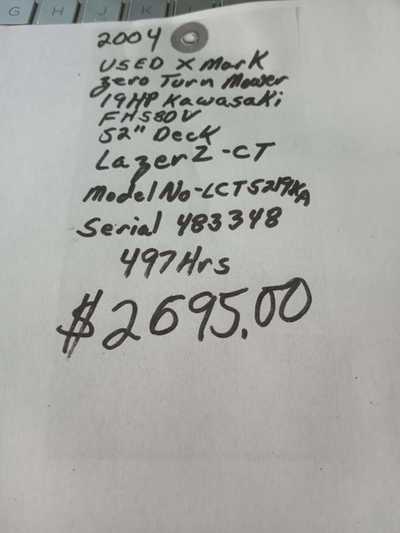 G H J K
2004
USED X Mark
Zero Turn Mower
19HP Kawasaki
FH580V
52" Deck
Lazer Z-CT
Model No-LCT5219KA
Serial 483348
497Hrs
$2695.00